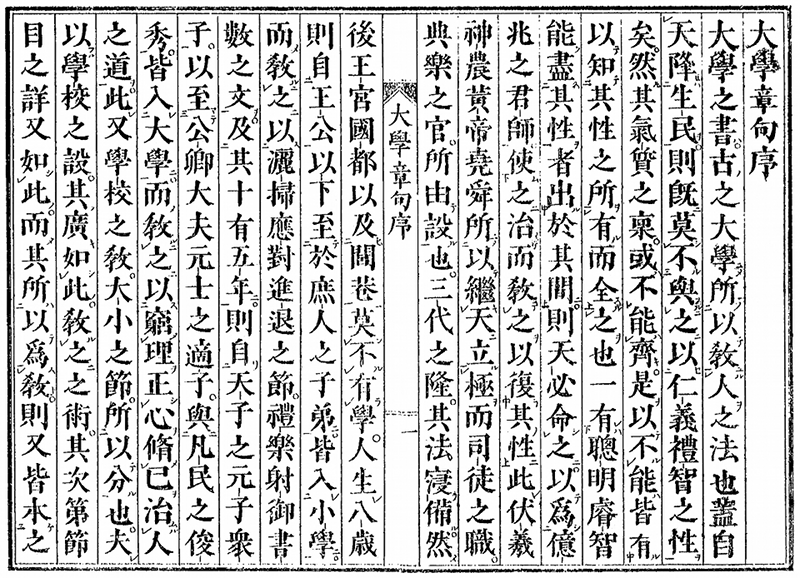 大學章句序
大學之書古之大學所以敎人之法也蓋自
天降生民則旣莫不與之以仁義禮智之性
矣然其氣質之稟或不能齊是以不能皆有
以知其性之所有而全之也一有聰明睿智
能盡其性者出於其閒則天必命之以爲億
兆之君師使之治而敎之以復其性此伏羲
神農黃帝堯舜所以繼天立極而司徒之職
典樂之官所由設也三代之隆其法寖備然
大學章句序 一
後王宮國都以及閭巷莫不有學人生八歲
則自王公以下至於庶人之子弟皆入小學
而敎之以灑掃應對進退之節禮樂射御書
數之文及其十有五年則自天子之元子衆
子以至公卿大夫元士之適子與凡民之俊
秀皆入大學而敎之以窮理正心脩己治人
之道此又學校之敎大小之節所以分也夫
以學校之設其廣如此敎之之術其次第節
目之詳又如此而其所以爲敎則又皆本之